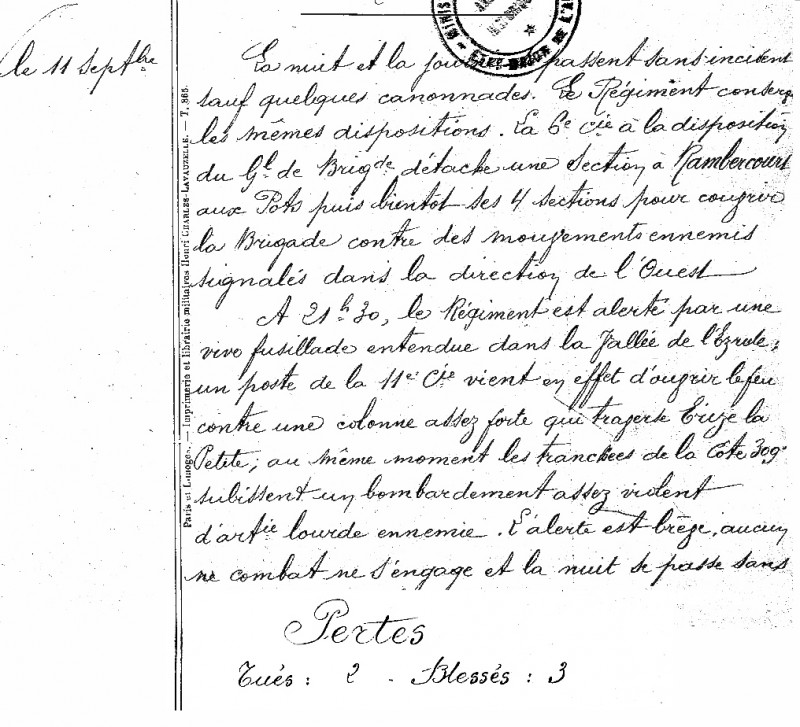 le 11 Septbre
La nuit et la jour passent sans incident
sauf quelques canonnades. Le Régiment conserve
les mêmes dispositions. La 6e Cie à la disposition
du Gl de Brigde détache une Section à Rambercourt
aux Pots puis bientot ses 4 sections pour couvrir
la Brigade contre des mouvements ennemis
signalés dans la direction de l'Ouest
A 21h30, le Régiment est alerté par une
vive fusillade entendue dans la Vallée de l'Ezrule;
un poste de la 11e Cie vient en effet d'ouvrir le feu
contre une colonne assez forte qui traverse Erize la
Petite; au même moment les tranchées de la Côte 309
subissent un bombardement assez violent
d'artie lourde ennemie. L'alerte est brève, aucun
ne combat ne s'engage et la nuit se passe sans
Pertes
Tués : 2 - Blessés : 3
Paris et Limoges. — Imprimerie et librairie militaires Henri CHARLES-LAVAUZELLE. — T. 865.
MINIS
ETAT-MAJOR DE L'A